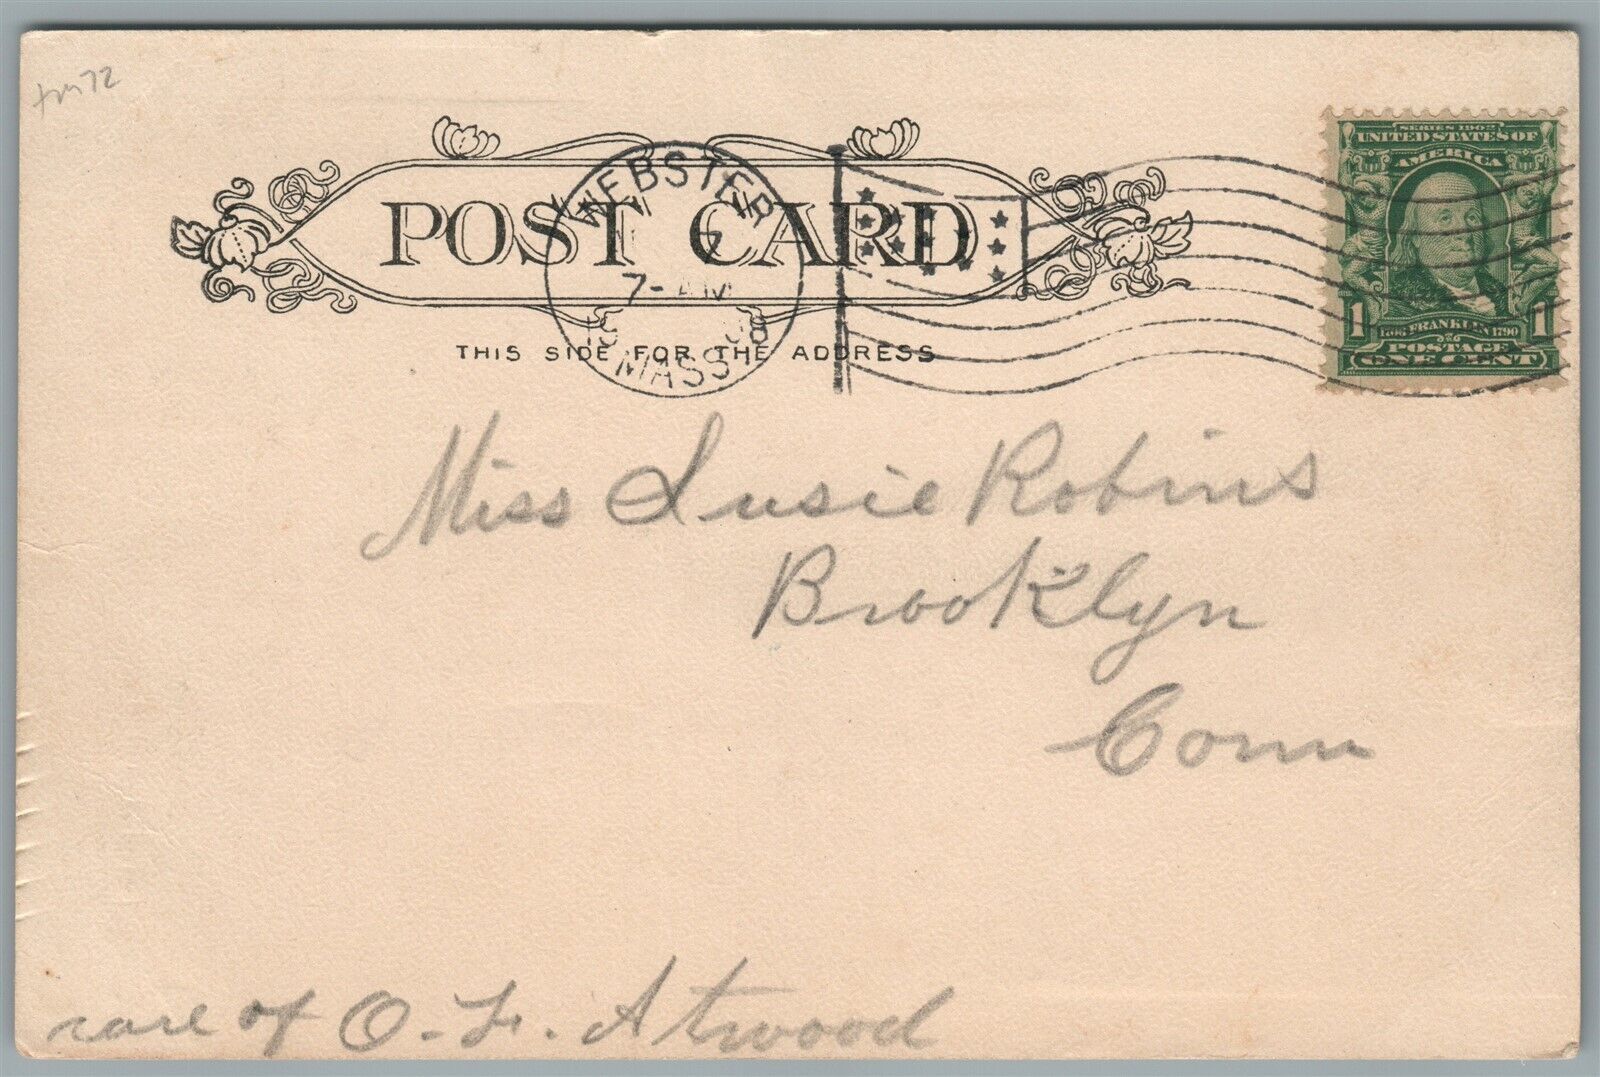 tm72
SERIES 1902
UNITED STATES OF
AMERICA
1 1
1706 FRANKLIN 1790
POSTAGE
ONE CENT
POST CARD
WEBSTER
7
7-AM
1908
MASS
THIS SIDE FOR THE ADDRESS
Miss Susie Robins
Brooklyn
Conn
care of O. F. Atwood